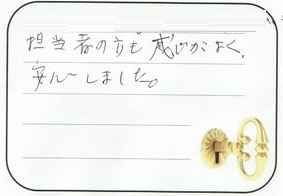 担当者の方も感じがよく、
安心しました。